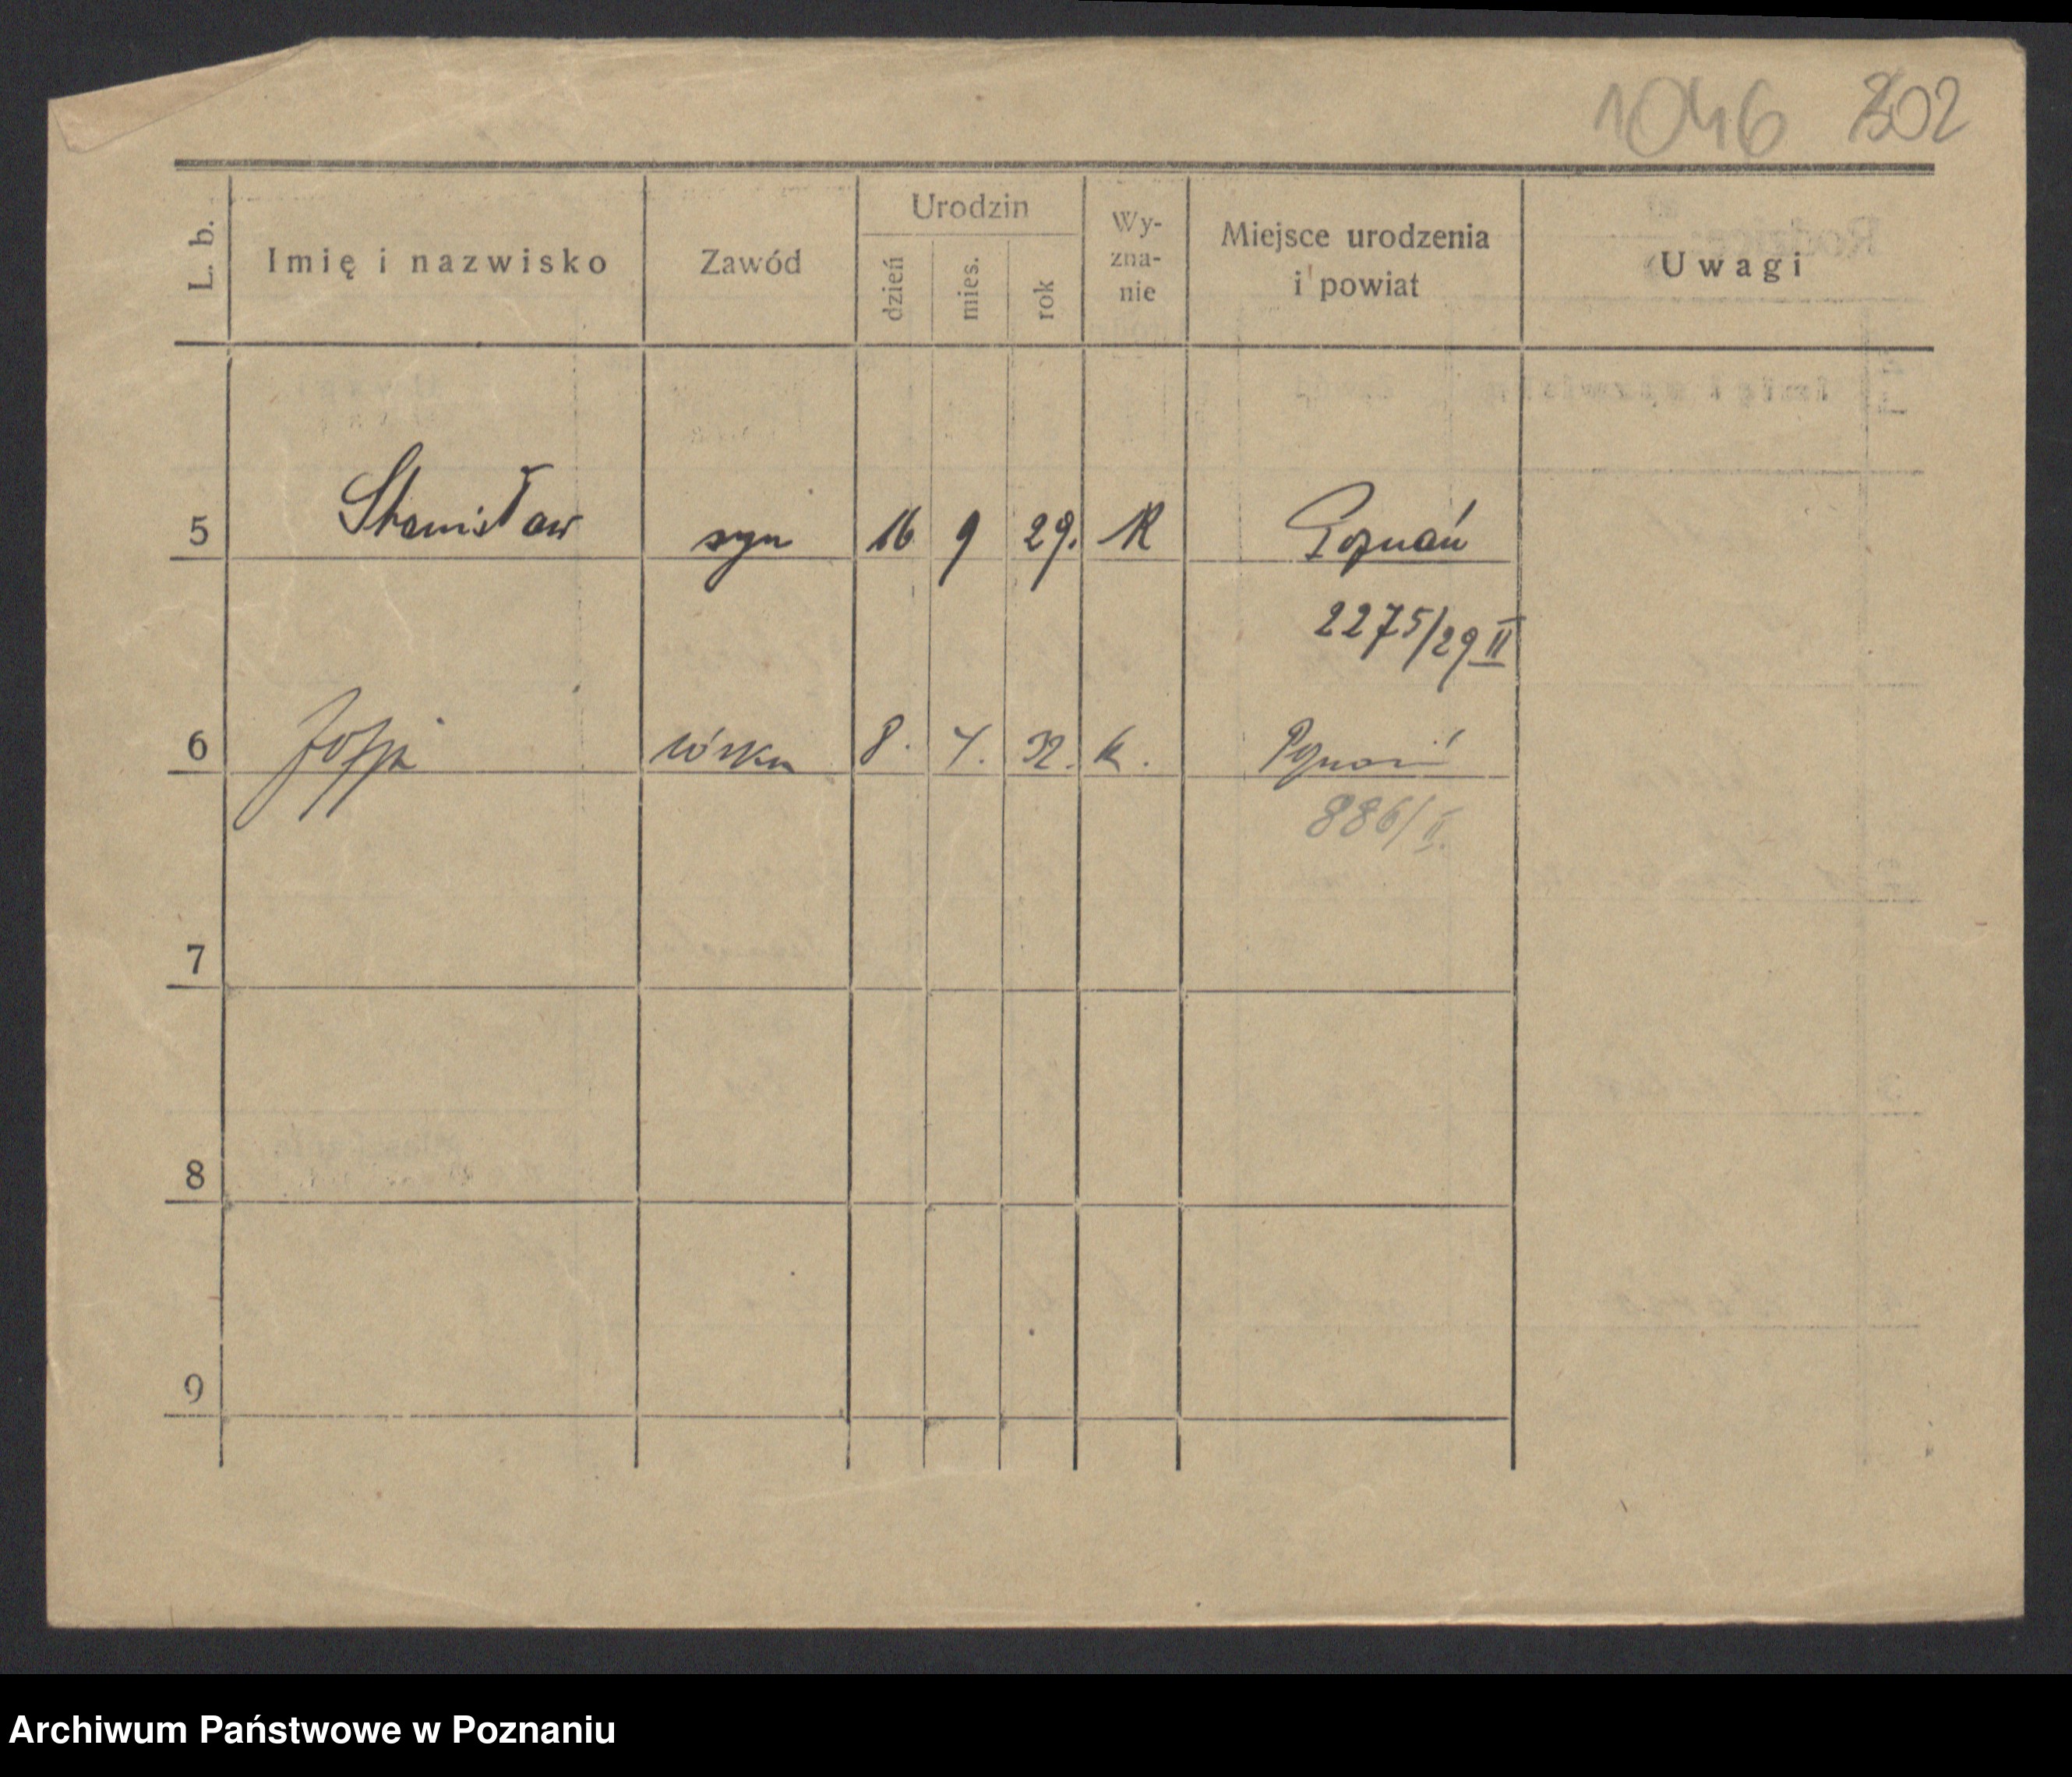 1046 802
L. b.
Imię i nazwisko
Zawód
Urodzin
dzień
mies.
rok
Wy-
zna-
nie
Miejsce urodzenia
i powiat
Uwagi
5 Stanisław syn 16 9 29. K Poznań
2275/29 II
6 Zofja córka 8. 4. 32. k. Poznań
886/II.
7
8
9
Archiwum Państwowe w Poznaniu